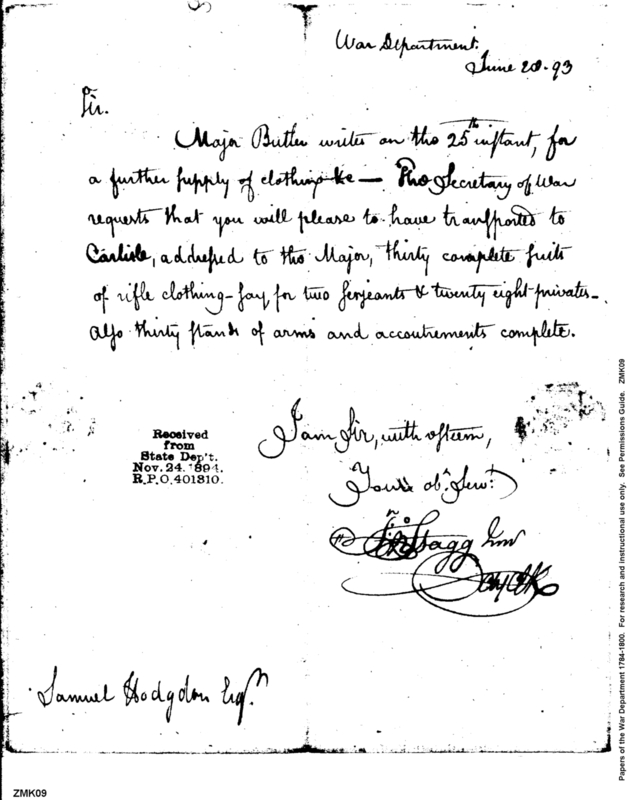 War Department.
June 28-93
Sir.
Major Butler writes on the 25th instant, for
a further supply of clothing &c — The Secretary of War
requests that you will please to have transported to
Carlisle, addressed to the Major, thirty complete suits
of rifle clothing-say for two Serjeants & twenty eight privates-
Also thirty stands of arms and accoutrements complete.
I am Sir, with esteem,
Your obt Servt
Jno Stagg Junr
Samuel Hodgdon Esqr
Received
from
State Dep't.
Nov. 24. 1894.
R.P.O. 401310.
ZMK09
Papers of the War Department 1784-1800. For research and instructional use only. See Permissions Guide. ZMK09